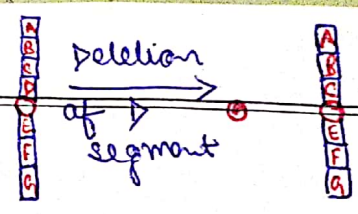 A
B
C
D
E
F
G
Deletion
of D
segment
A
B
C
E
F
G